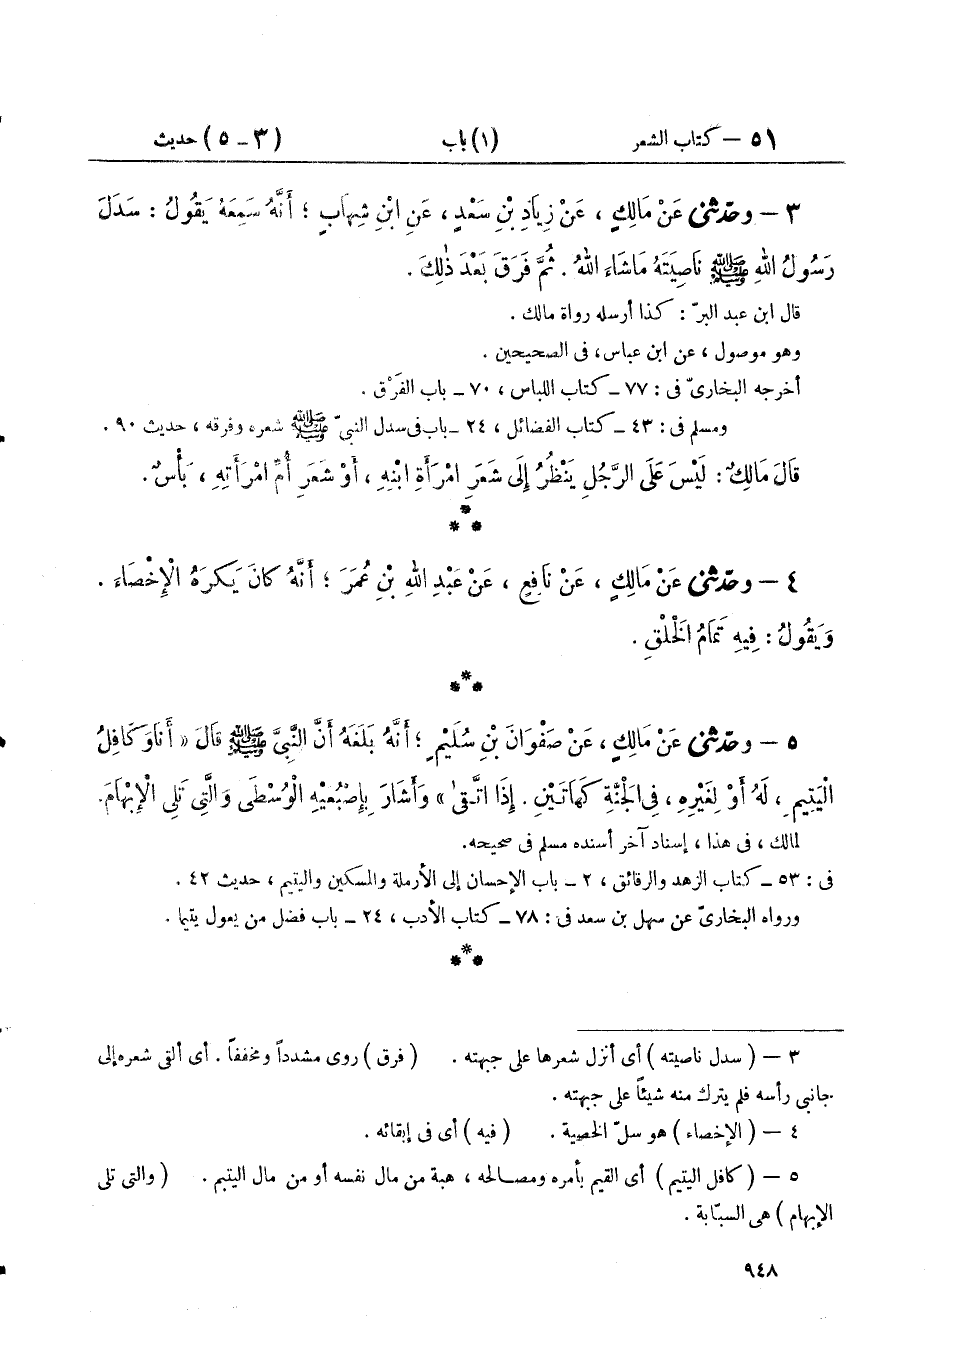 ٥١ – كتاب الشعر (١) باب (٣ – ٥) حديث
٣ – وحدّثنى عَنْ مَالِكٍ ، عَنْ زِيَادِ بْنِ سَعْدٍ ، عَنِ ابْنِ شِهَابٍ ؛ أَنَّهُ سَمِعَهُ يَقُولُ : سَدَلَ
رَسُولُ اللهِ ﷺ نَاصِيَتَهُ مَا شَاءَ اللهُ . ثُمَّ فَرَقَ بَعْدَ ذٰلِكَ .
قال ابن عبد البرّ : كذا أرسله رواة مالك .
وهو موصول ، عن ابن عباس، فى الصحيحين .
أخرجه البخارىّ فى : ٧٧ – كتاب اللباس ، ٧٠ – باب الفَرْق .
ومسلم فى : ٤٣ – كتاب الفضائل ، ٢٤ – باب فى سدل النبىّ ﷺ شعره وفرقه ، حديث ٩٠ .
قَالَ مَالِكٌ : لَيْسَ عَلَى الرَّجُلِ يَنْظُرُ إِلَى شَعَرِ امْرَأَةِ ابْنِهِ ، أَوْ شَعَرِ أُمِّ امْرَأَتِهِ ، بَأْسٌ .
***
٤ – وحدّثنى عَنْ مَالِكٍ ، عَنْ نَافِعٍ ، عَنْ عَبْدِ اللهِ بْنِ عُمَرَ ؛ أَنَّهُ كَانَ يَكْرَهُ الْإِخْصَاءَ .
وَيَقُولُ : فِيهِ تَمَامُ الْخَلْقِ .
***
٥ – وحدّثنى عَنْ مَالِكٍ ، عَنْ صَفْوَانَ بْنِ سُلَيْمٍ ؛ أَنَّهُ بَلَغَهُ أَنَّ النَّبِيَّ ﷺ قَالَ « أَنَا وَكَافِلُ
الْيَتِيمِ ، لَهُ أَوْ لِغَيْرِهِ ، فِى الْجَنَّةِ كَهَاتَيْنِ . إِذَا اتَّقَىٰ » وَأَشَارَ بِإِصْبُعَيْهِ الْوُسْطَى وَالَّتِى تَلِى الْإِبْهَامَ.
لمالك ، فى هذا ، إسناد آخر أسنده مسلم فى صحيحه.
فى : ٥٣ – كتاب الزهد والرقائق ، ٢ – باب الإحسان إلى الأرملة والمسكين واليتيم ، حديث ٤٢ .
ورواه البخارىّ عن سهل بن سعد فى : ٧٨ – كتاب الأدب ، ٢٤ – باب فضل من يعول يتيما .
***
٣ – ( سدل ناصيته ) أى أنزل شعرها على جبهته . ( فرق ) روى مشدداً ومخففاً . أى ألقى شعره إلى
جانبى رأسه فلم يترك منه شيئاً على جبهته .
٤ – ( الإخصاء ) هو سلّ الخصية . ( فيه ) أى فى إبقائه .
٥ – ( كافل اليتيم ) أى القيم بأمره ومصالحه ، هبة من مال نفسه أو من مال اليتيم . ( والتى تلى
الإبهام ) هى السبّابة .
٩٤٨